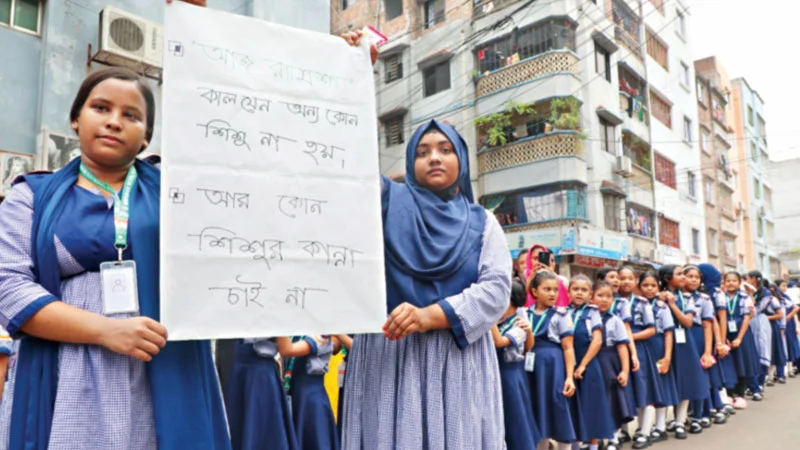 আজ রামিশা
কাল যেন অন্য কোন
শিশু না হয়।
আর কোন
শিশুর কান্না
চাই না